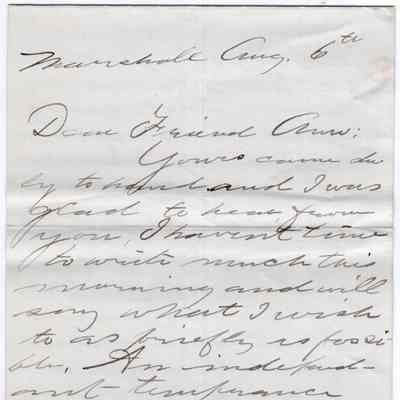 Marshall Aug. 6th
Dear Friend Ann:
Yours came du
ly to hand and I was
glad to hear from
you, I havent time
to write much this
morning and will
say what I wish
to as briefly as possi-
ble. An independ-
ant temperance